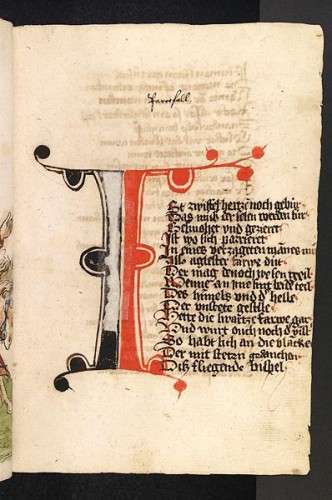 parcifall
I
St zwiffel hertze noch gebur
Das muß der selen werden sur
Gesmohet vnd gezieret
Ist wo sich parrieret
In eines verzageten mānes mut
Also agelester farwe dut
Der mag denoch wesen geil
Wenne an ime sint beide teil
Des himels vnd d' helle
Der vnstete geselle
Hette die swartze farwe gar
Vnd wurt ouch noch d'
So habt sich an die blancke
Der mit stetem gedancken
Dis fliegende bispel